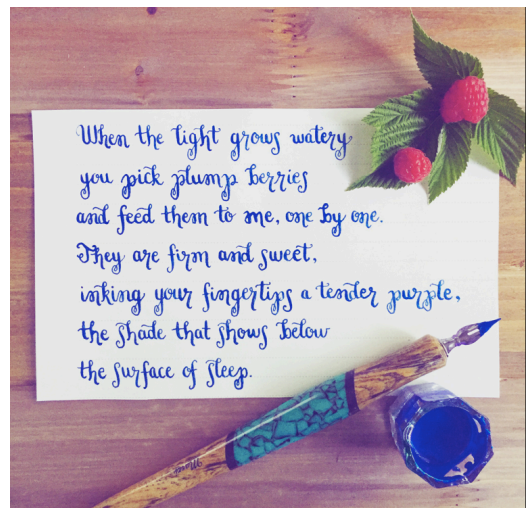 When the light grows watery
you pick plump berries
and feed them to me, one by one.
They are firm and sweet,
inking your fingertips a tender purple,
the shade that shows below
the surface of sleep.